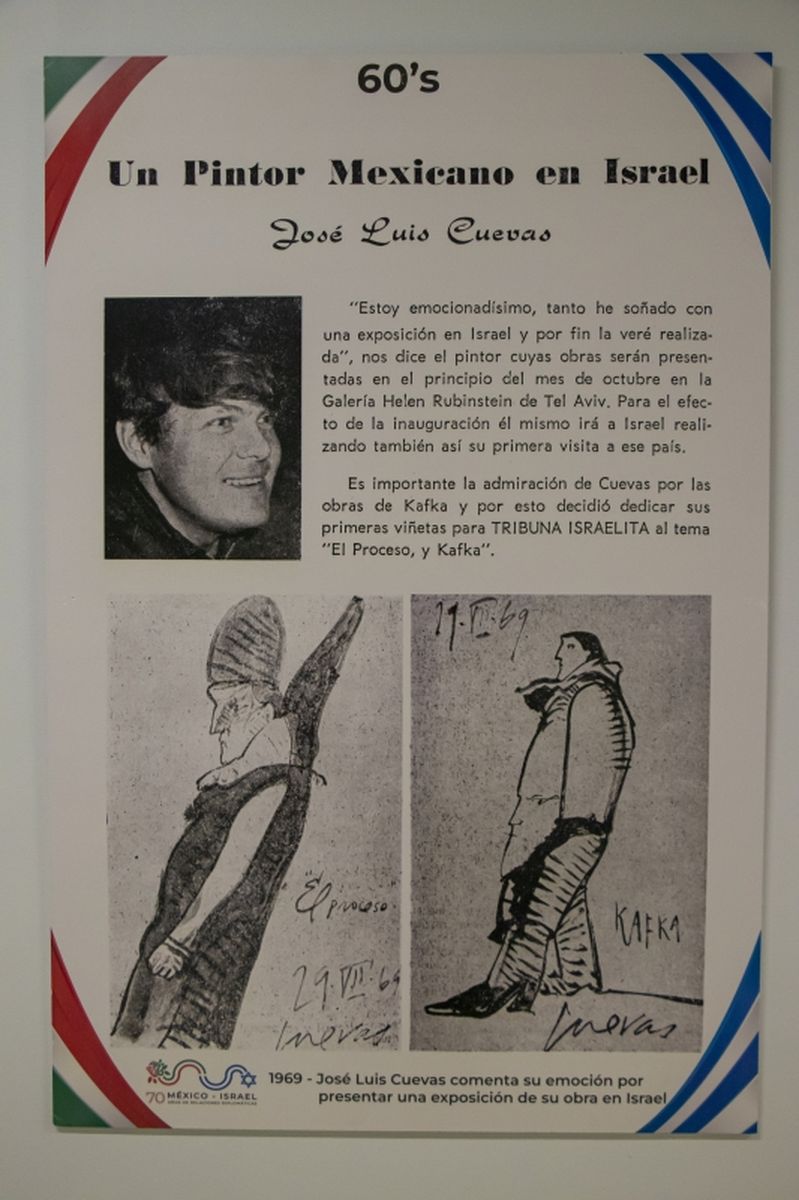 60's
Un Pintor Mexicano en Israel
José Luis Cuevas
"Estoy emocionadísimo, tanto he soñado con
una exposición en Israel y por fin la veré realiza-
da", nos dice el pintor cuyas obras serán presen-
tadas en el principio del mes de octubre en la
Galería Helen Rubinstein de Tel Aviv. Para el efec-
to de la inauguración él mismo irá a Israel reali-
zando también así su primera visita a ese país.
Es importante la admiración de Cuevas por las
obras de Kafka y por esto decidió dedicar sus
primeras viñetas para TRIBUNA ISRAELITA al tema
"El Proceso, y Kafka".
"El proceso"
29·VII·69
Cuevas
29·VII·69
KAFKA
Cuevas
70 MÉXICO - ISRAEL
AÑOS DE RELACIONES DIPLOMÁTICAS
1969 - José Luis Cuevas comenta su emoción por
presentar una exposición de su obra en Israel